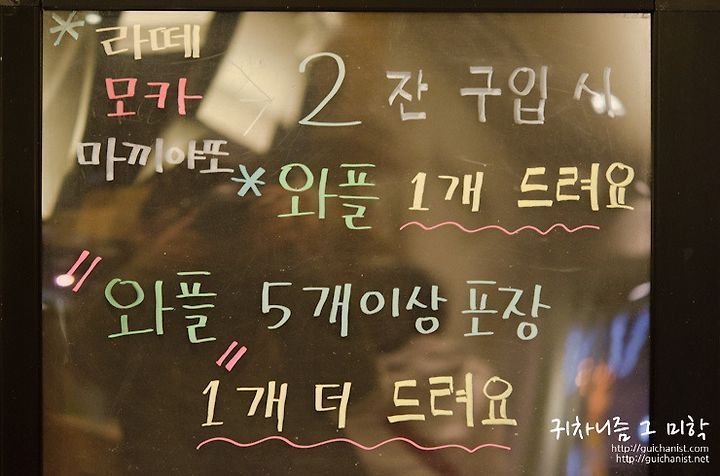 * 라떼
모카 > 2 잔 구입 시
마끼야또
* 와플 1개 드려요
" 와플 5개이상 포장 "
1개 더 드려요
귀차니즘 그 미학
http://guichanist.com
http://guichanist.net